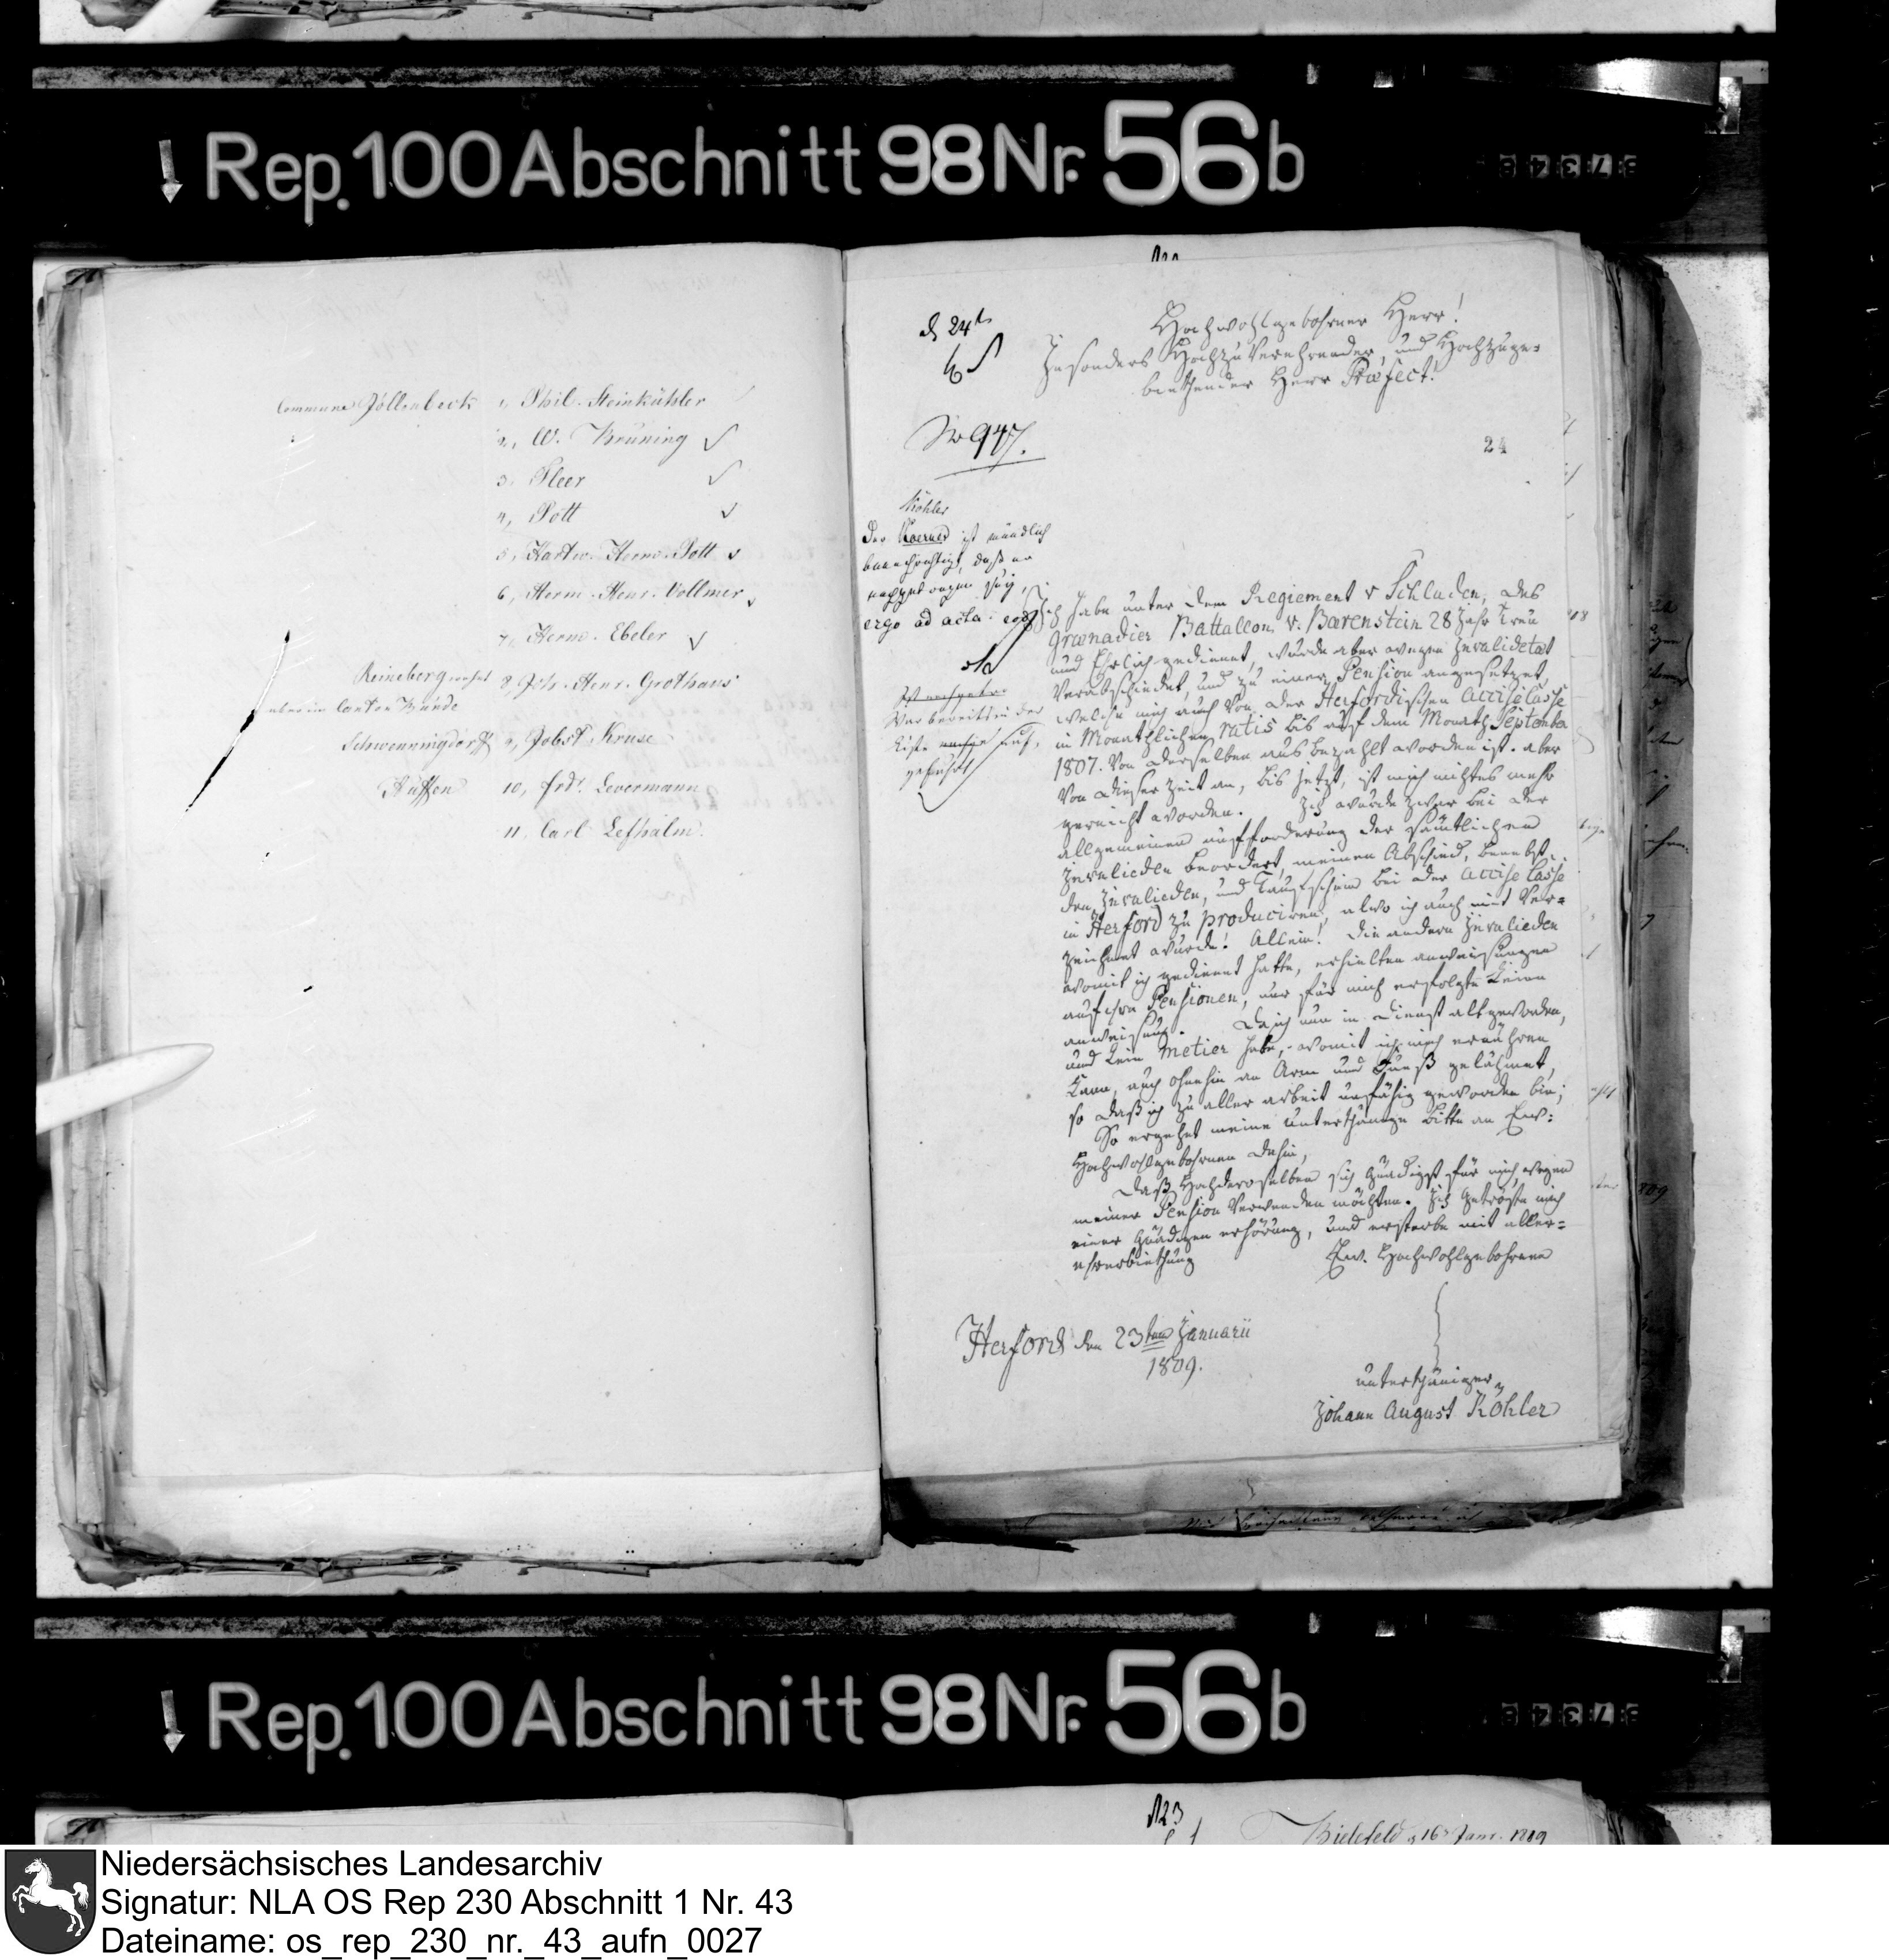 Rep. 100 Abschnitt 98 Nr. 56b
Commune Jöllenbeck 1, Phil. Steinkühler
2, W. Brüning ✓
3, Pleer ✓
4, Pott ✓
5, Hartw. Herm. Pott ✓
6, Herm. Henr. Vollmer ✓
7, Herm. Ebeler ✓
Reineberg 8, Joh. Henr. Grothaus
aber im Canton Bünde
Schwenningdorff 9, Jobst Kruse
Huffen 10, Frdr. Levermann
11, Carl
d 24t
No 977.
Köhler
Der ist mündlich
benachrichtigt, daß er
ergo ad acta
War bereits in der
Liste auf,
geführt
Hochwohlgebohrner Herr!
Insonders Hochzuverehrender, und Hochzuge=
biethender Herr Præfect!
24
Ich habe unter dem Regiement v Schladen, des
Grænadier Battallon v. Bærenstein 28 Jahr treü
und Ehrlich gedienet, wurde aber wegen Invalidetæt
verabschiedet, und zu einer Pension angesetzet,
welche mich auch von der Herfordischen Accise Casse
in Monathlichen ratis bis auf dem Monath September
1807. von derselben aus bezahlt worden ist. aber
von dieser Zeit an, bis jetzt, ist mich nichtes mehr
gereicht worden. Ich wurde zwar bei der
allgemeinen aufforderung der sämtlichen
Invalieden beordert, meinen Abschied, benebst
den Invalieden, und Taufschein bei der Accise Casse
in Herford zu produciren, alwo ich auch mit ver=
zeichnet wurde! Allein! die andern Invalieden
womit ich gedienet hatte, erhielten anweisungen
auf ihre Pensionen, nur für mich erfolgte keine
anweisung. Da ich nun in Dienst alt geworden,
und kein Metier habe, womit ich mich ernähren
kann, auch ohnehin an Arm und Fueß gelähmet,
so daß ich zu aller arbeit unfähig geworden bin;
So ergehet meine unterthänige bitte an Ew:
Hochwohlgebohrnen dahin,
daß Hochderoselben sich gnädigst für mich wegen
meiner Pension verwenden möchten. Ich getröste mich
einer gnädigen erhörung, und ersterbe mit aller=
ehrerbiethung
Ew. Hochwohlgebohrnen
Herford den 23ten Januarii
1809.
unterthäniger
Johann August Köhler
Rep. 100 Abschnitt 98 Nr. 56b
123
Bielefeld d 16 Janr. 1809
Niedersächsisches Landesarchiv
Signatur: NLA OS Rep 230 Abschnitt 1 Nr. 43
Dateiname: os_rep_230_nr._43_aufn_0027